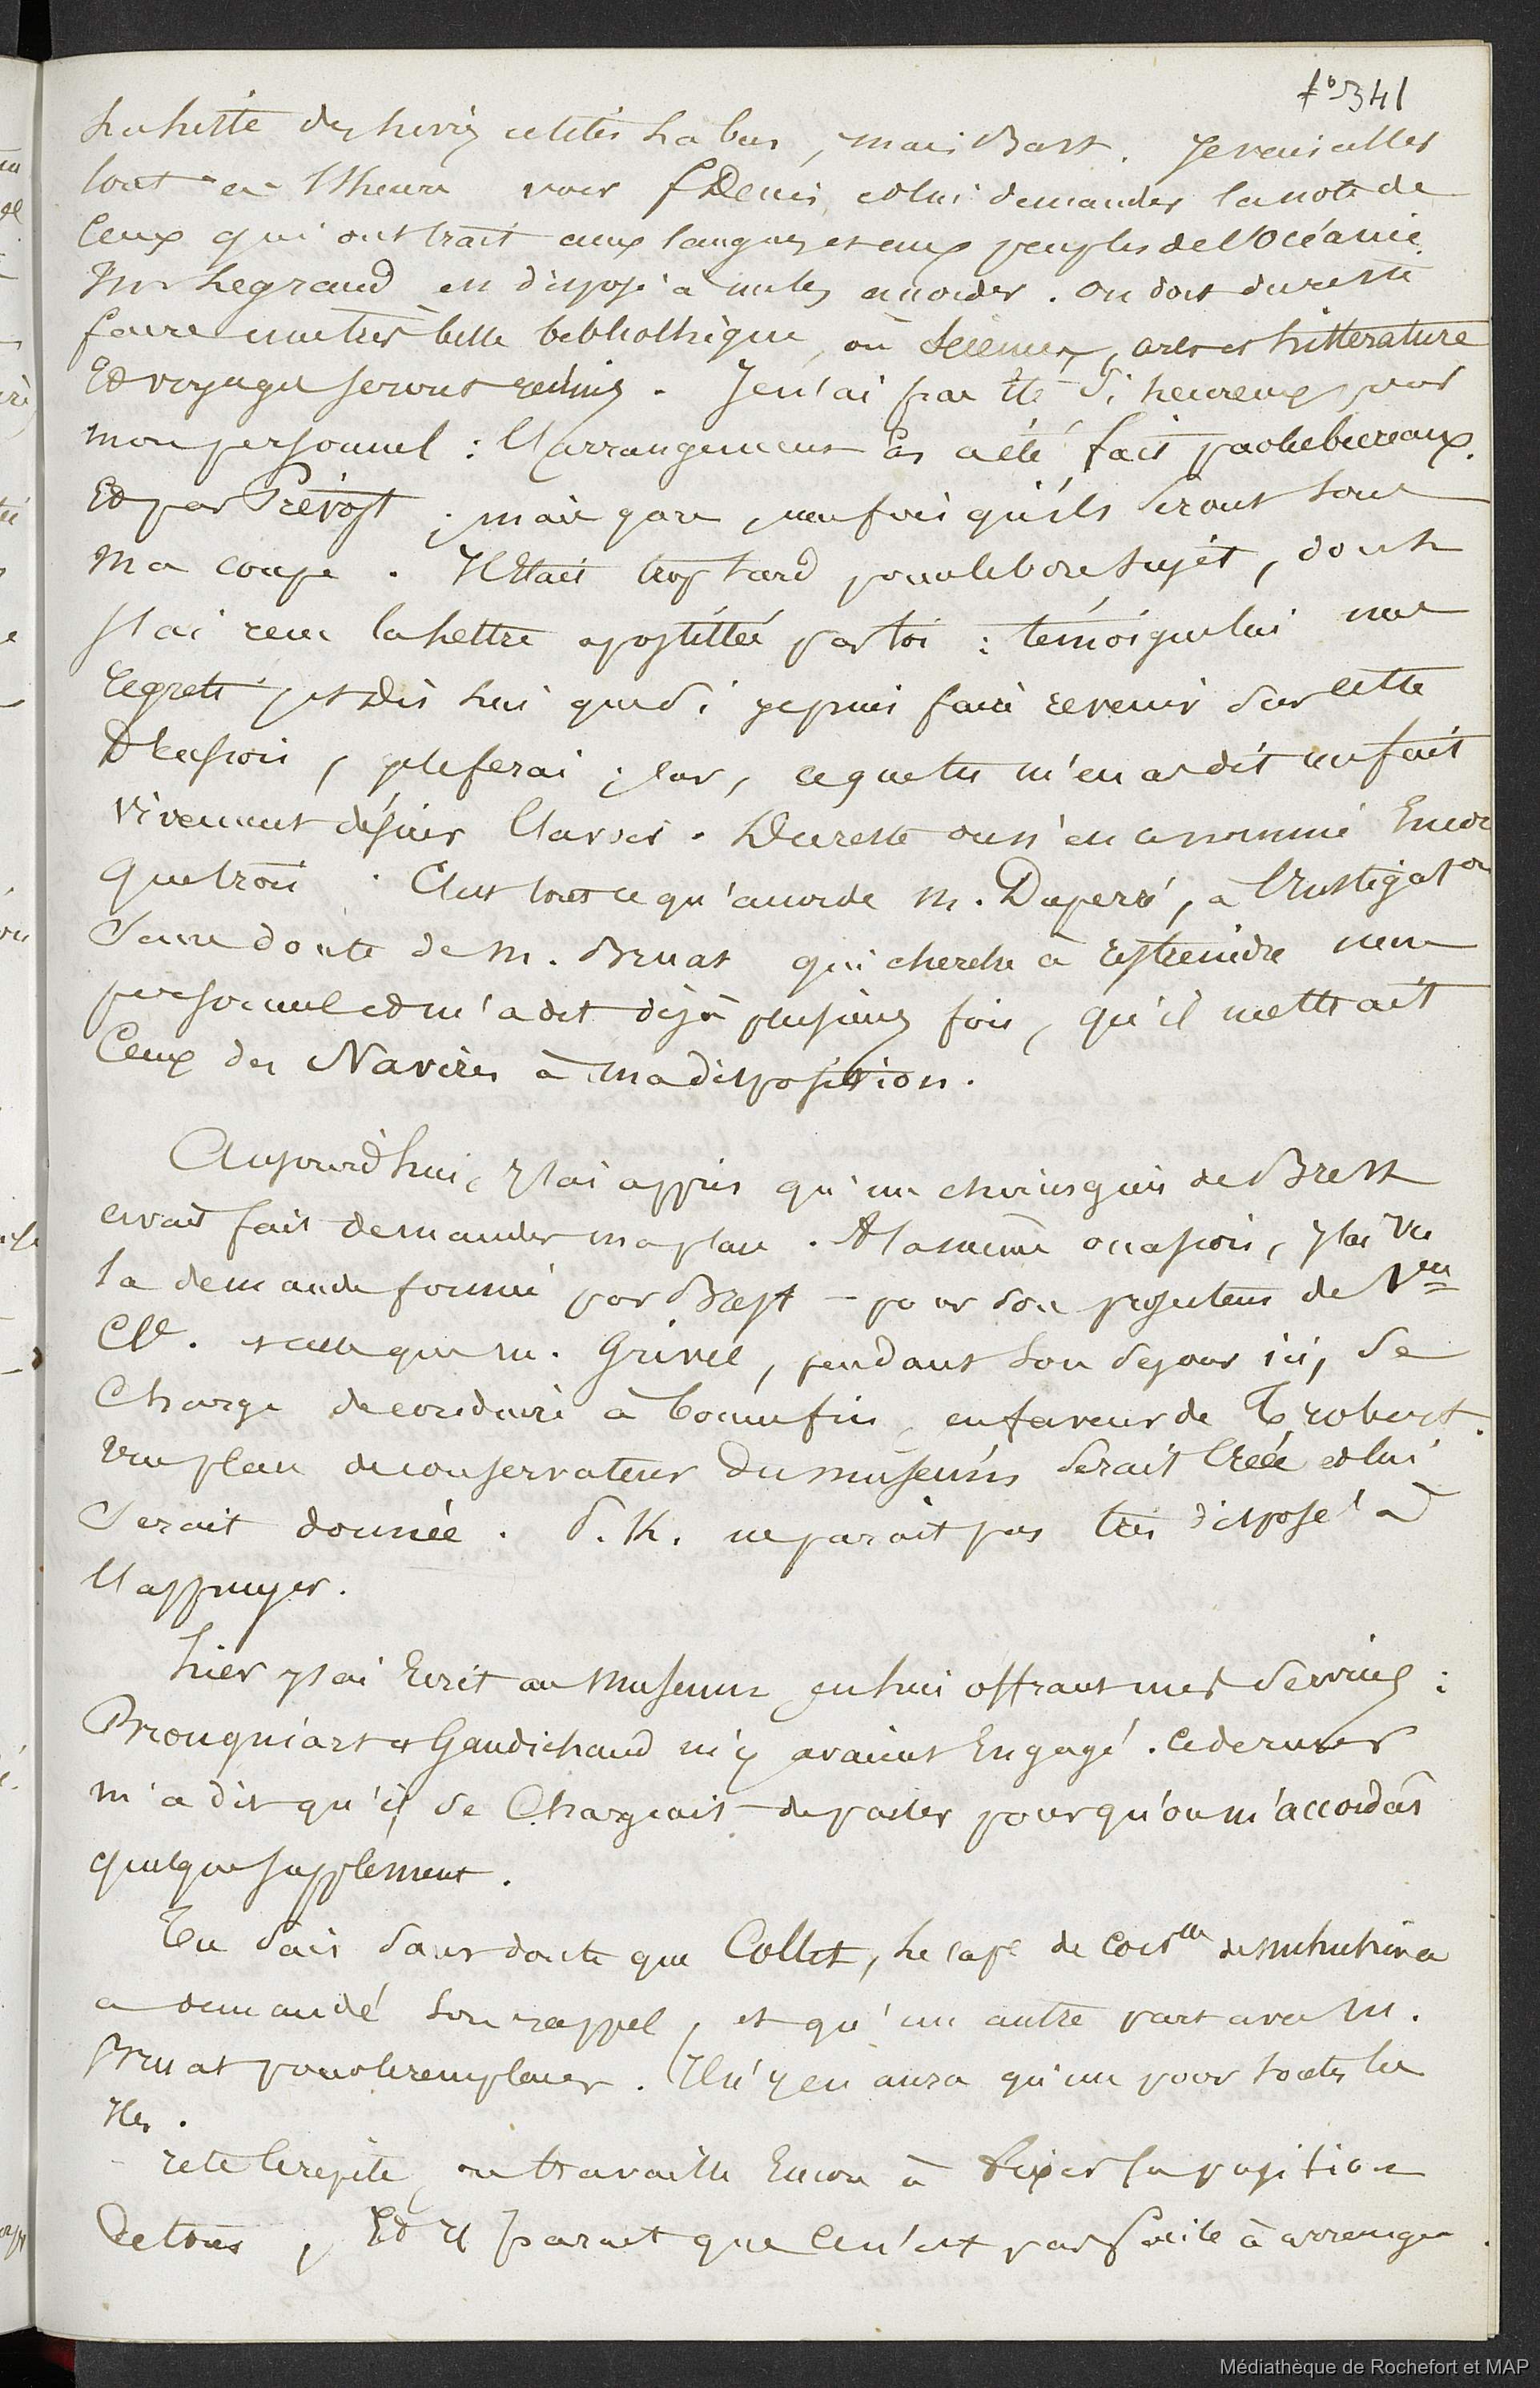 f° 341
La liste des livres utiles là bas, mais Bast. Je vais aller
tout à l'heure voir f Denis, et lui demander la note de
Ceux qui ont trait aux langues et aux peuples de l'Océanie.
Mr Legrand est disposé à me les accorder. On doit du reste
faire une très belle bibliothèque, où Sciences, arts et Littérature
Et voyages seront réunis. Je n'ai pas été si heureux pour
mon personnel : l'arrangement en a été fait par les bureaux.
Et par Prévost ; mais gare, une fois qu'ils seront sous
Ma coupe. Il était trop tard pour le bon sujet, dont
j'ai reçu la lettre apostillée par toi : témoigne lui mes
Regrets, et dis lui que si je puis faire revenir sur cette
Décision, je le ferai ; car, ce que tu m'en as dit me fait
Vivement désirer l'avoir. Du reste on n'en a nommé Encore
que trois. C'est tout ce qu'accorde M. Duperré, à l'instigaton
Sans doute de M. Bruat qui cherche à restreindre mon
personnel et m'a dit déjà plusieurs fois, qu'il mettrait
Ceux des Navires à ma disposition.
Aujourd'hui, j'ai appris qu'un chirurgien de Brest
avait fait demander ma place. A la même occasion, j'ai vu
la demande formée par Brest – pour son professeur de 1ère
Cl. et celle que M. Grivel, pendant son séjour ici, se
Charge de conduire à bonne fin, en faveur de
une place de conservateur du muséum serait créée et lui
Serait donnée. P. K. ne parait pas très disposé à
l'appuyer.
hier j'ai Ecrit au Muséum en lui offrant mes Services :
Brongniart et Gaudichaud m'y avaient Engagé. Ce dernier
m'a dit qu'il se Chargeait de parler pour qu'on m'accordât
quelque supplément.
Tu sais sans doute que Collet, le cape de corvtte de
a demandé son rappel, et qu'un autre part avec M.
Bruat pour le remplacer. Il n'y en aura qu'un pour toutes les
Iles.
Je te le répète, on travaille Encore à fixer la position
De tous, Et il parait que ce n'est pas facile à arranger.
Médiathèque de Rochefort et MAP